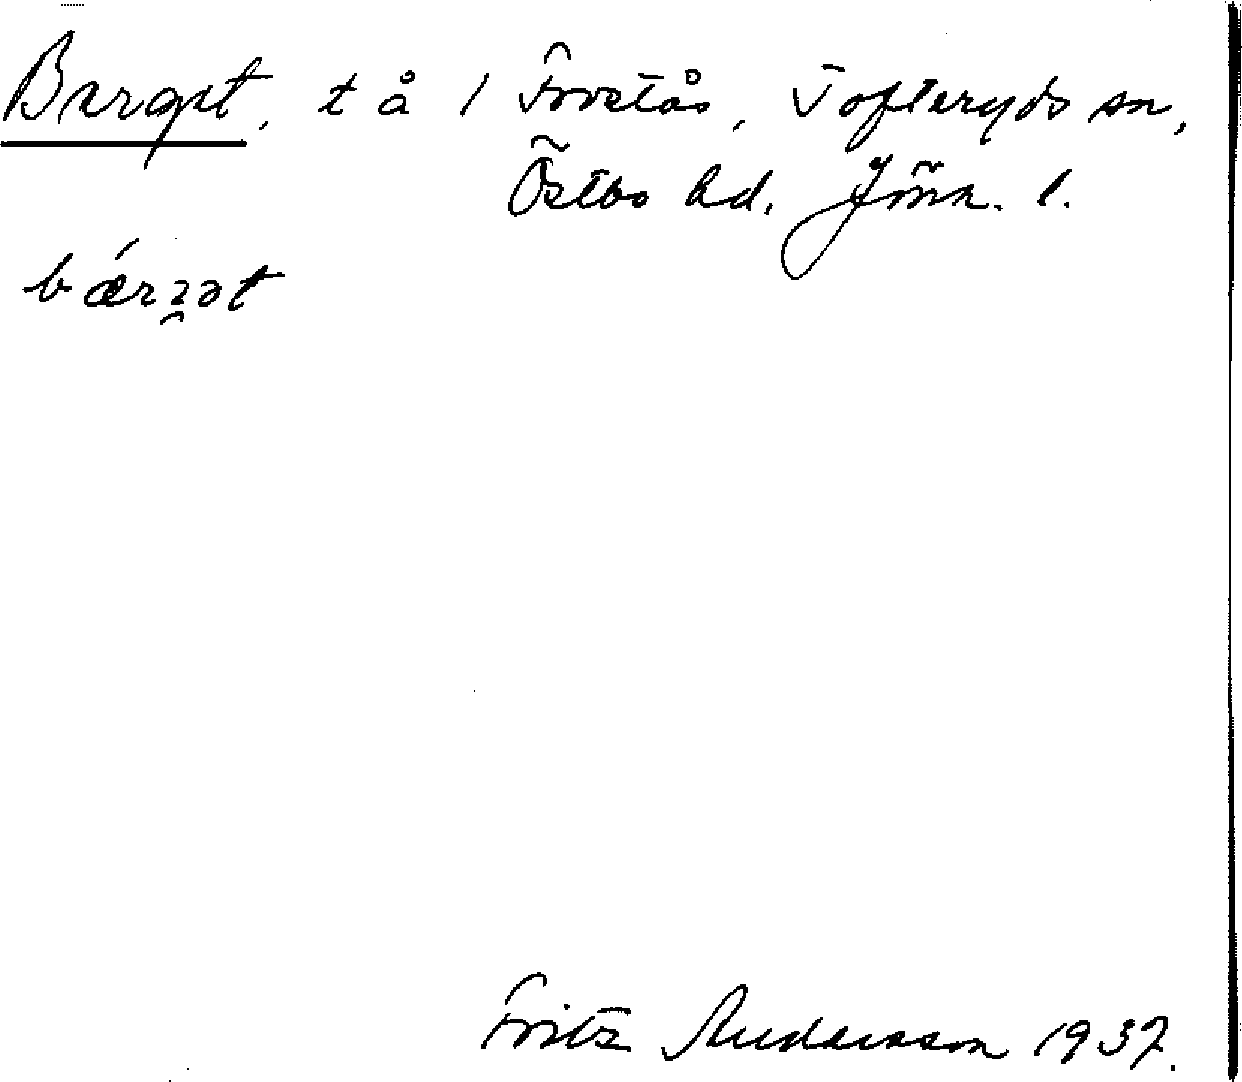 Berget, t å 1 Frostås, Tofteryds sn,
Östbo hd, Jönk. l.
bǽrʒət
Fritz Andersson 1937.